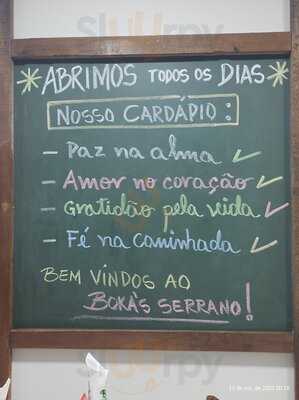 ABRIMOS TODOS OS DIAS
NOSSO CARDÁPIO:
- Paz na alma
- Amor no coração
- Gratidão pela vida
- Fé na caminhada
BEM VINDOS AO
BOKA'S SERRANO!
sluurpy